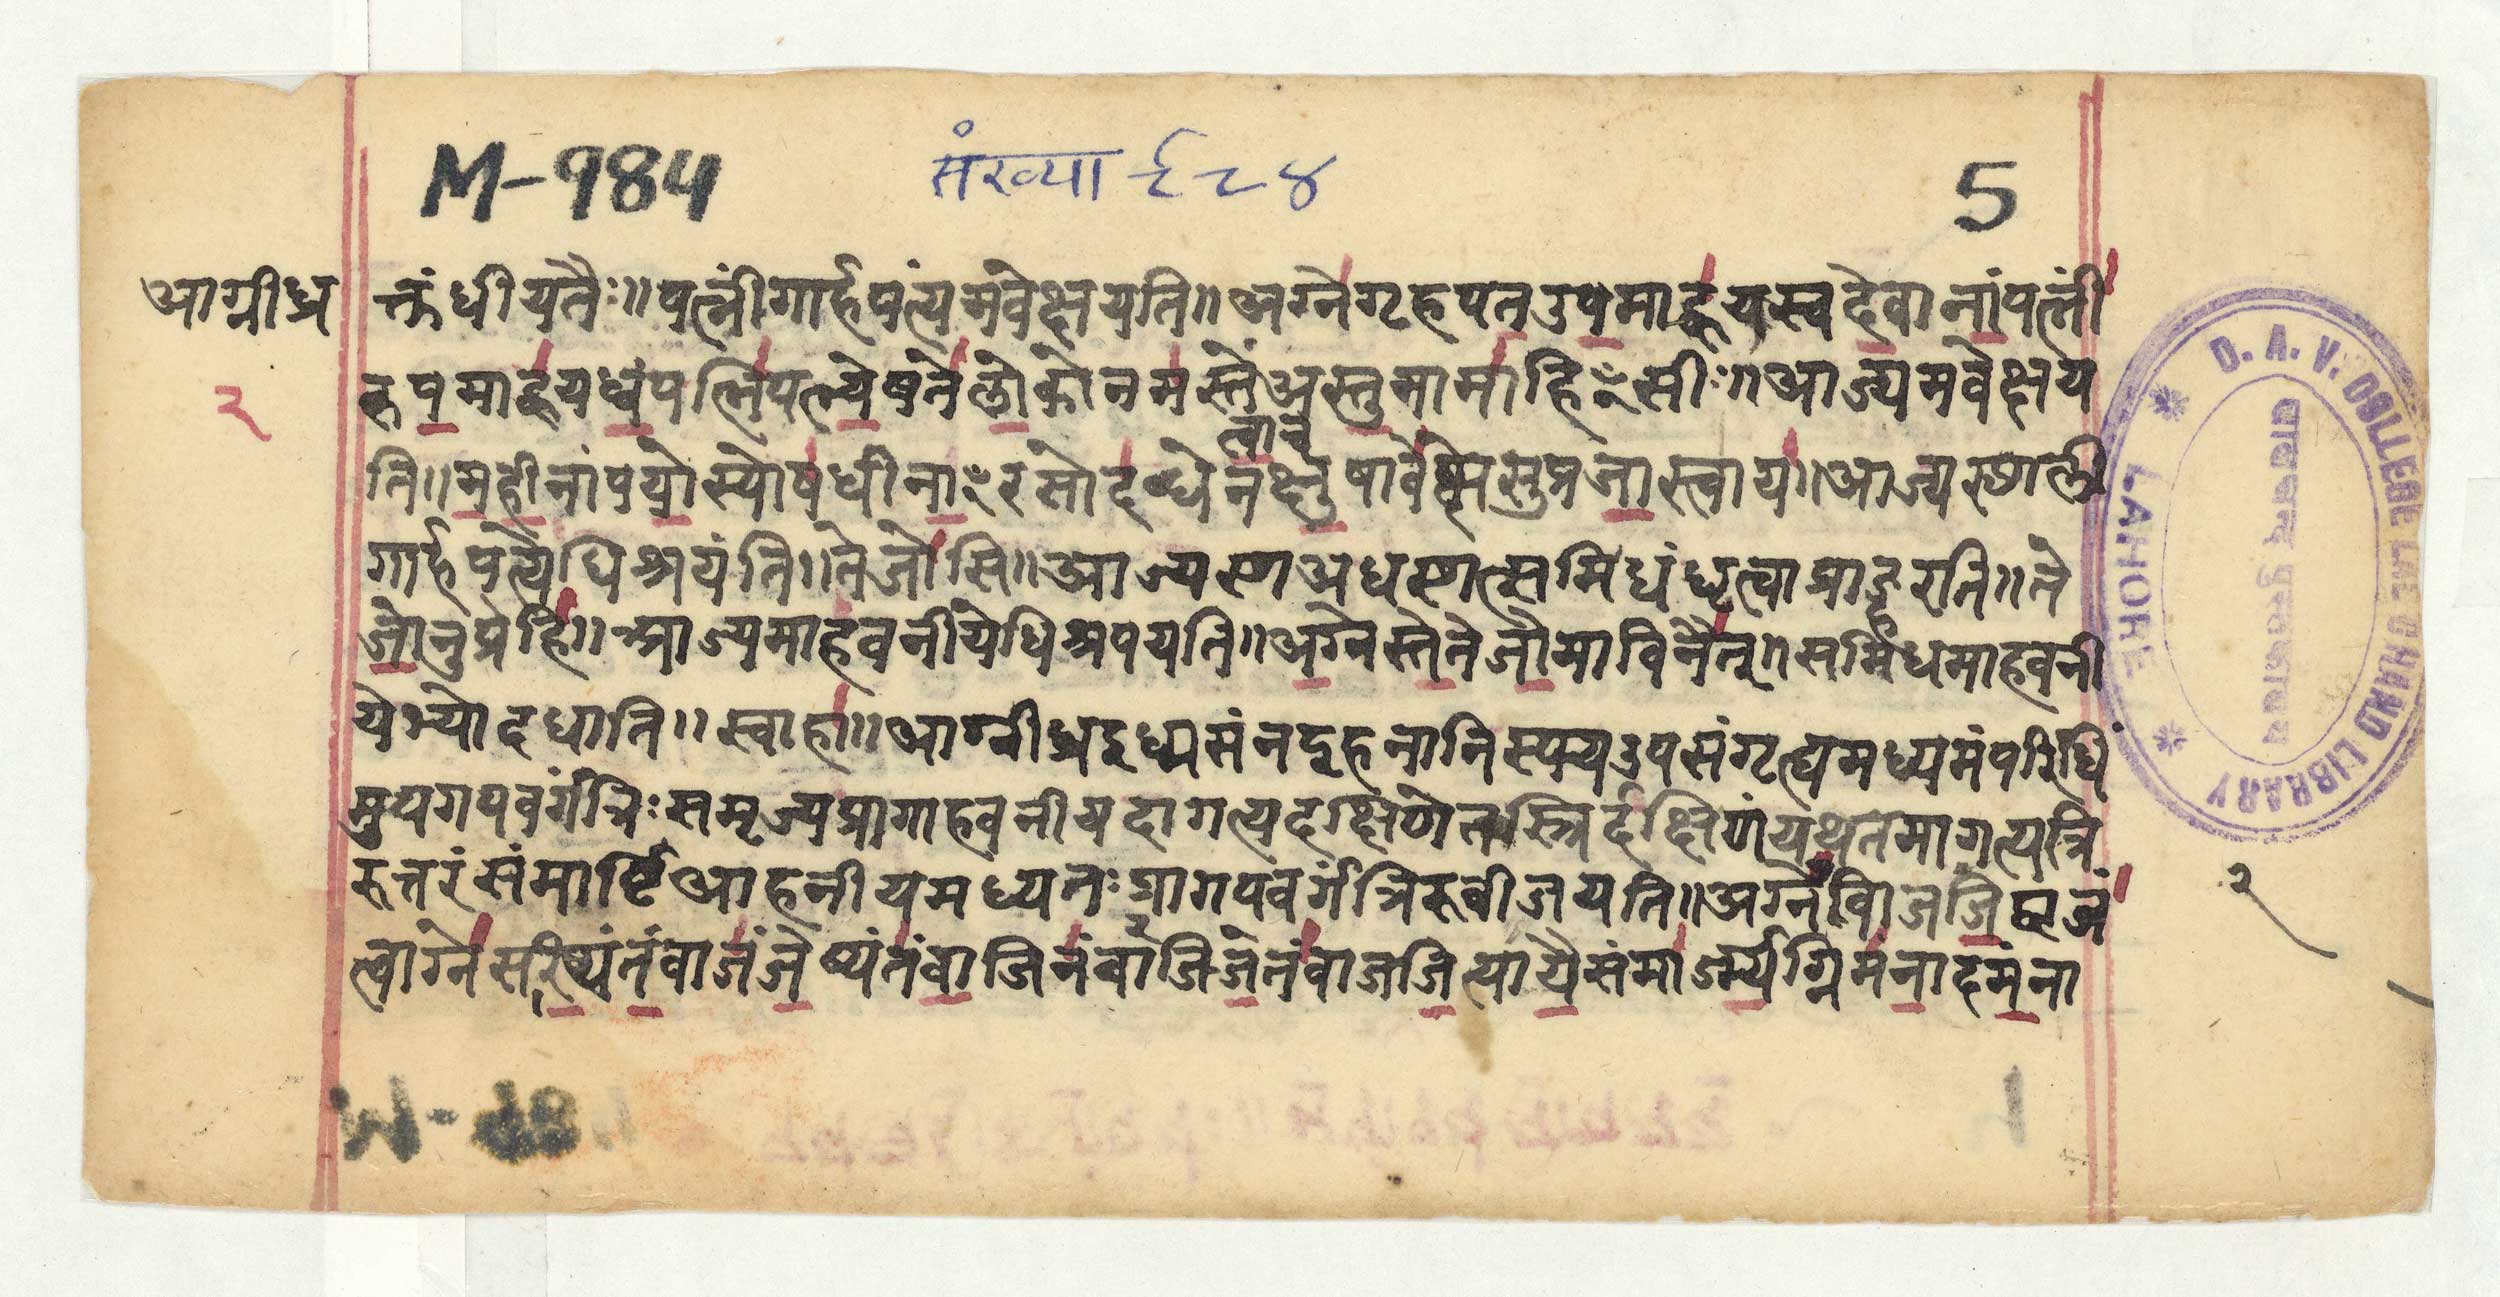 M-984
संख्या ९८४
5
आग्नीध्र
२
क्तंधीयतैः॥पत्नींगार्हपत्यमवेक्षयति॥अग्नेगृहपतउपमाह्वयस्वदेवानांपत्नी
रुपमाह्वयध्वंपत्निपत्न्येषतेलोकोनमस्तेअस्तुमामाहिꣳसीः॥आज्यमवेक्षय
त्वाच
ति॥महीनांपयोस्योषधीनाꣳरसोदब्धेनक्षुषावेक्षेसुप्रजास्त्वाय॥आज्यस्थाली
गार्हपत्येधिश्रयंति॥तेजोसि॥आज्यस्थाअधस्थात्समिधंधृत्वाप्राङ्हरति॥ते
जोनुप्रेहि॥आज्यमाहवनीयेधिश्रपयति॥अग्नेस्तेतेजोमाविनैत्॥समिधमाहवनी
येभ्योदधाति॥स्वाहा॥आग्नीध्रइध्मसंनद्हनानिस्फ्यउपसंगृह्यमध्यमंपरिधिं
मुपगपवर्गंत्रिःसमृज्यप्रागाहवनीयदागत्यदक्षिणेनस्त्रिर्दक्षिणंयथेतमागत्यत्रि
रुत्तरंसंमार्ष्टिआहनीयमध्यतःप्रागपवर्गंत्रिरुवीजयति॥अग्नेवाजजिद्वाजं
त्वाग्नेसरिष्यंतंवाजंजेष्यंतंवाजिनंवाजिजेतंवाजजित्यायैसंमार्ज्म्यग्निमंनादमंना
२
D. A. V. COLLEGE LAL CHAND LIBRARY
* LAHORE *
लालचन्द पुस्तकालय